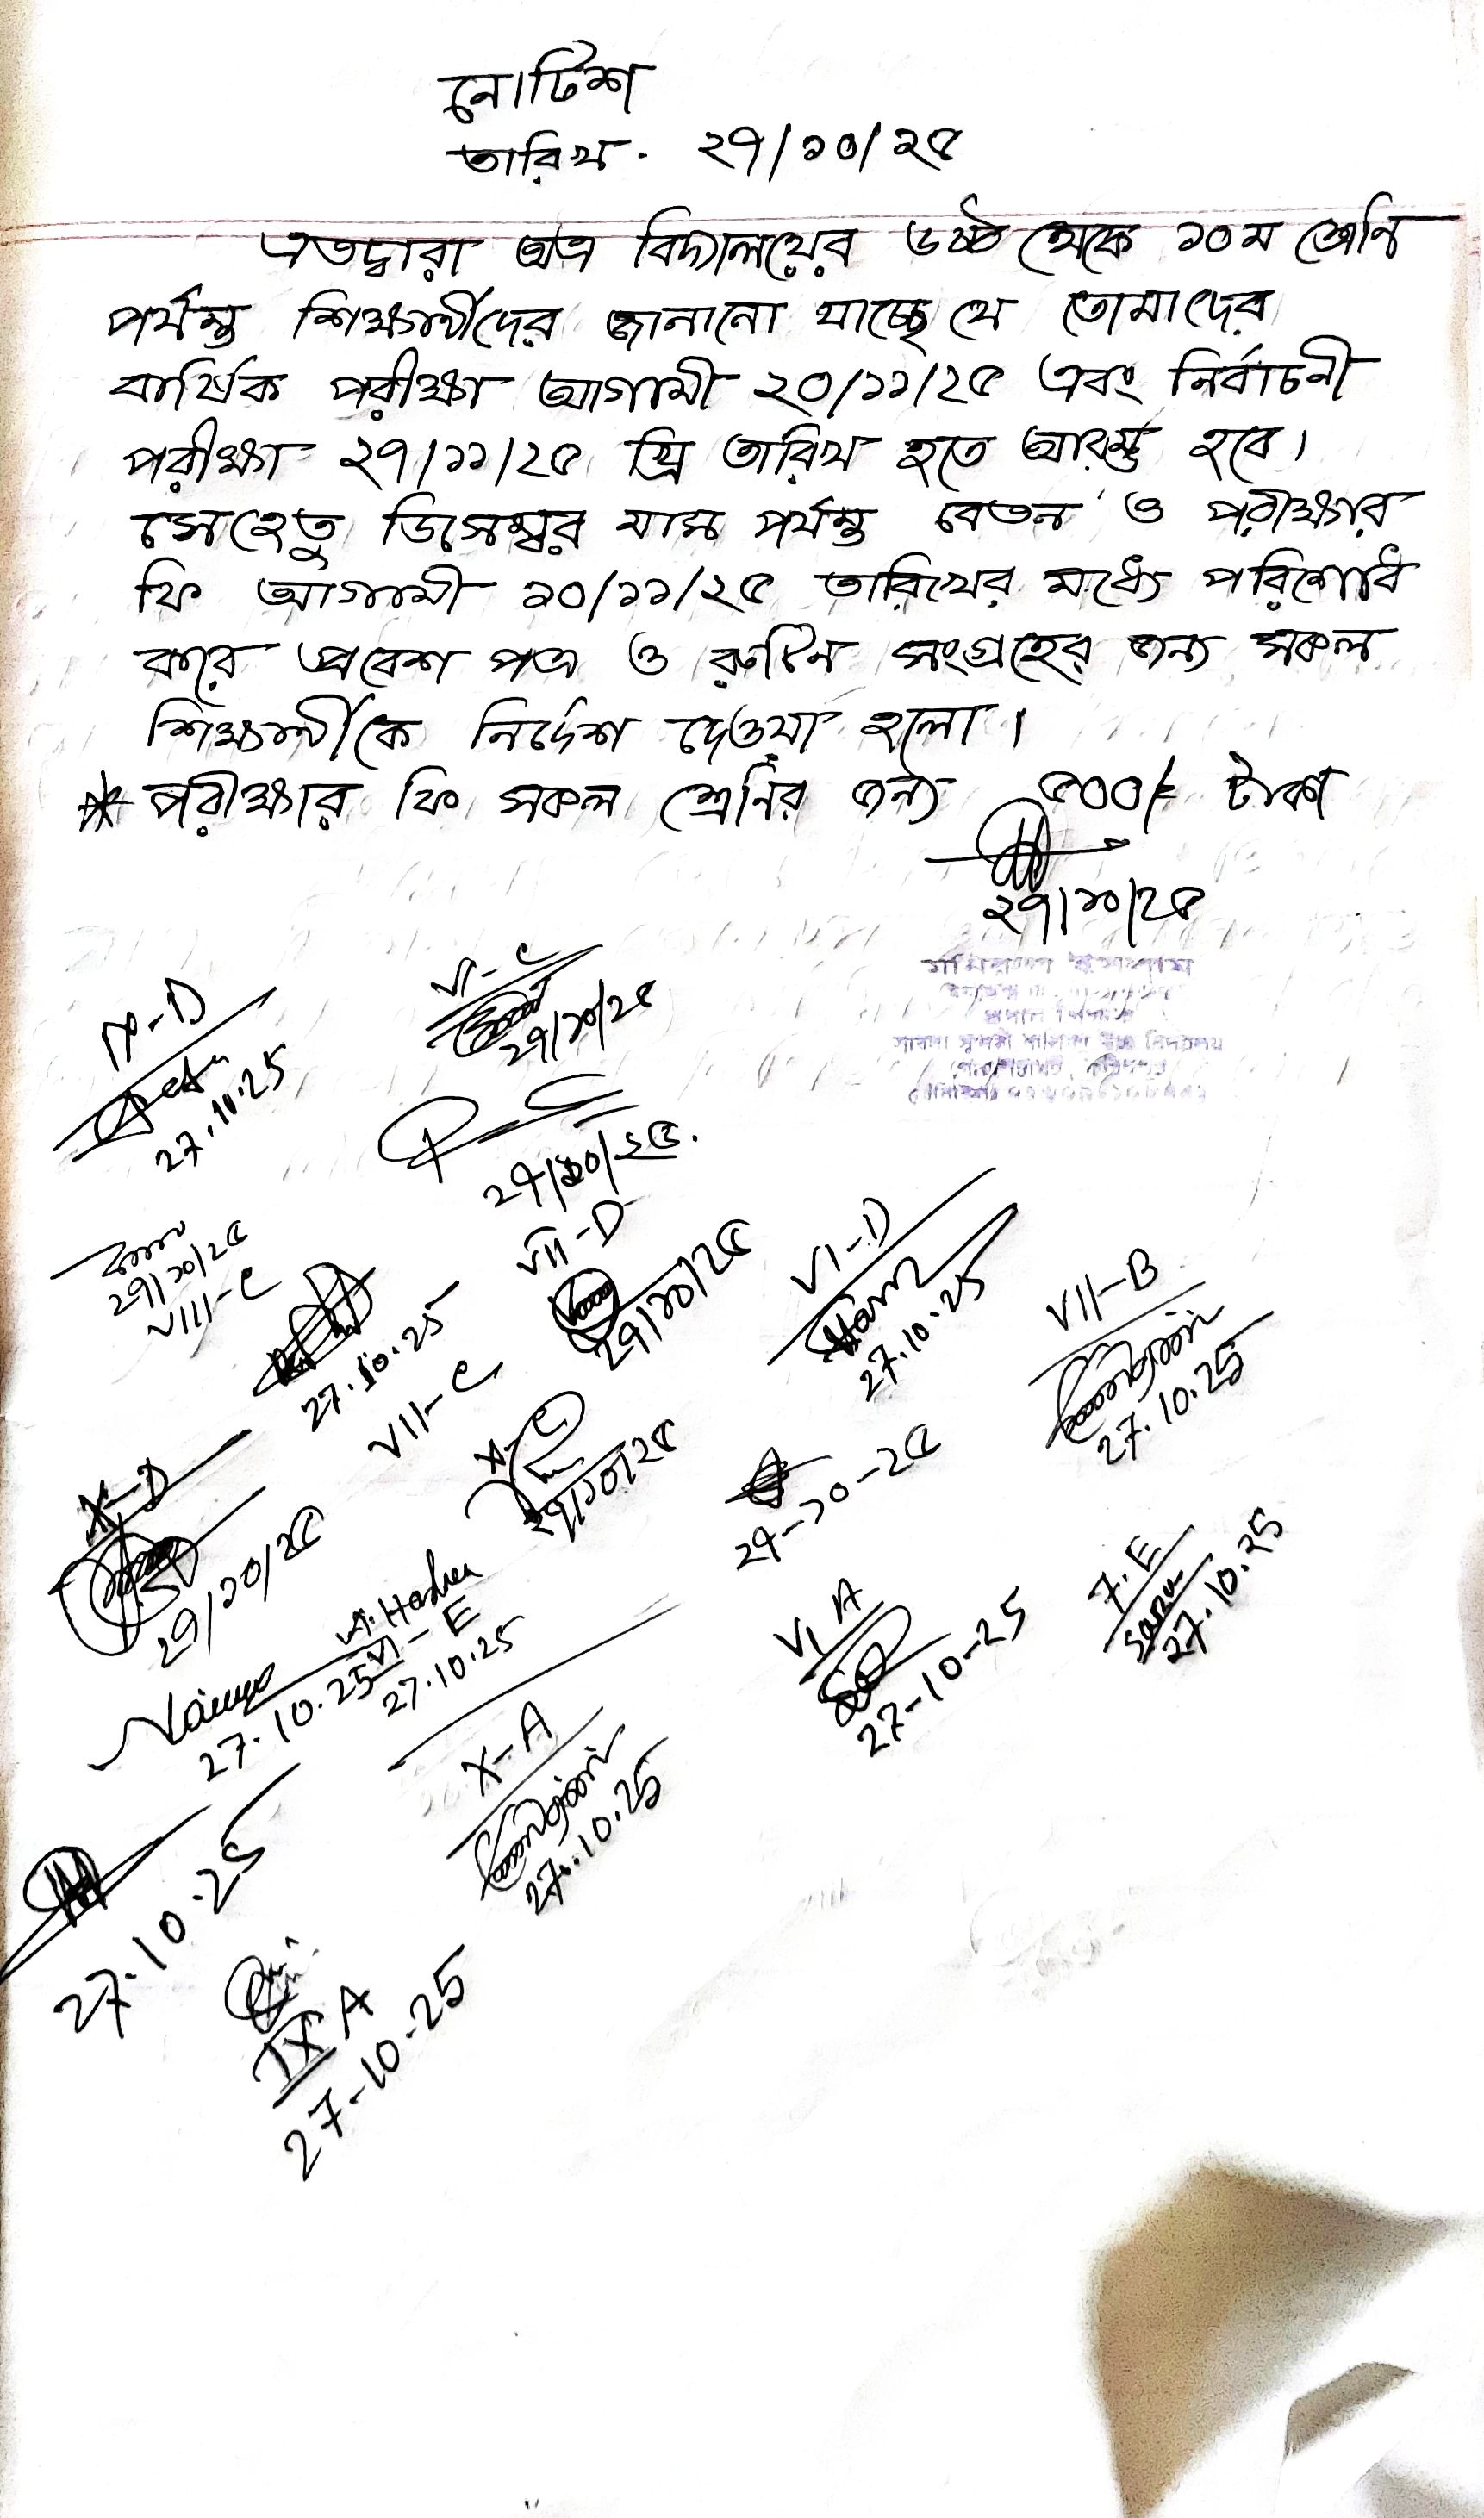 নোটিশ
তারিখ. ২৭/১০/২৫
এতদ্বারা অত্র বিদ্যালয়ের ৬ষ্ঠ থেকে ১০ম শ্রেনি
পর্যন্ত শিক্ষার্থীদের জানানো যাচ্ছে যে তোমাদের
বার্ষিক পরীক্ষা আগামী ২০/১১/২৫ এবং নির্বাচনী
পরীক্ষা ২৭/১১/২৫ খ্রি তারিখ হতে আরম্ভ হবে।
সেহেতু ডিসেম্বর মাস পর্যন্ত বেতন ও পরীক্ষার
ফি আগামী ১০/১১/২৫ তারিখের মধ্যে পরিশোধ
করে প্রবেশ পত্র ও রুটিন সংগ্রহের জন্য সকল
শিক্ষার্থীকে নির্দেশ দেওয়া হলো।
* পরীক্ষার ফি সকল শ্রেনির জন্য ৫০০/= টাকা
২৭/১০/২৫
27.10.25
২৭/১০/২৫
২৭/১০/২৫.
২৭/১০/২৫
VIII-C
27.10.25
VII-C
VII-D
২৭/১০/২৫
VI-D
27.10.25
VII-B
27.10.25
X-D
২৭/১০/২৫
২৭/১০/২৫
২৭-১০-২৫
VI A
27-10-25
7.E
27.10.25
27.10.25
VI-E
27.10.25
X-A
27.10.25
27.10.25
IX A
27-10-25